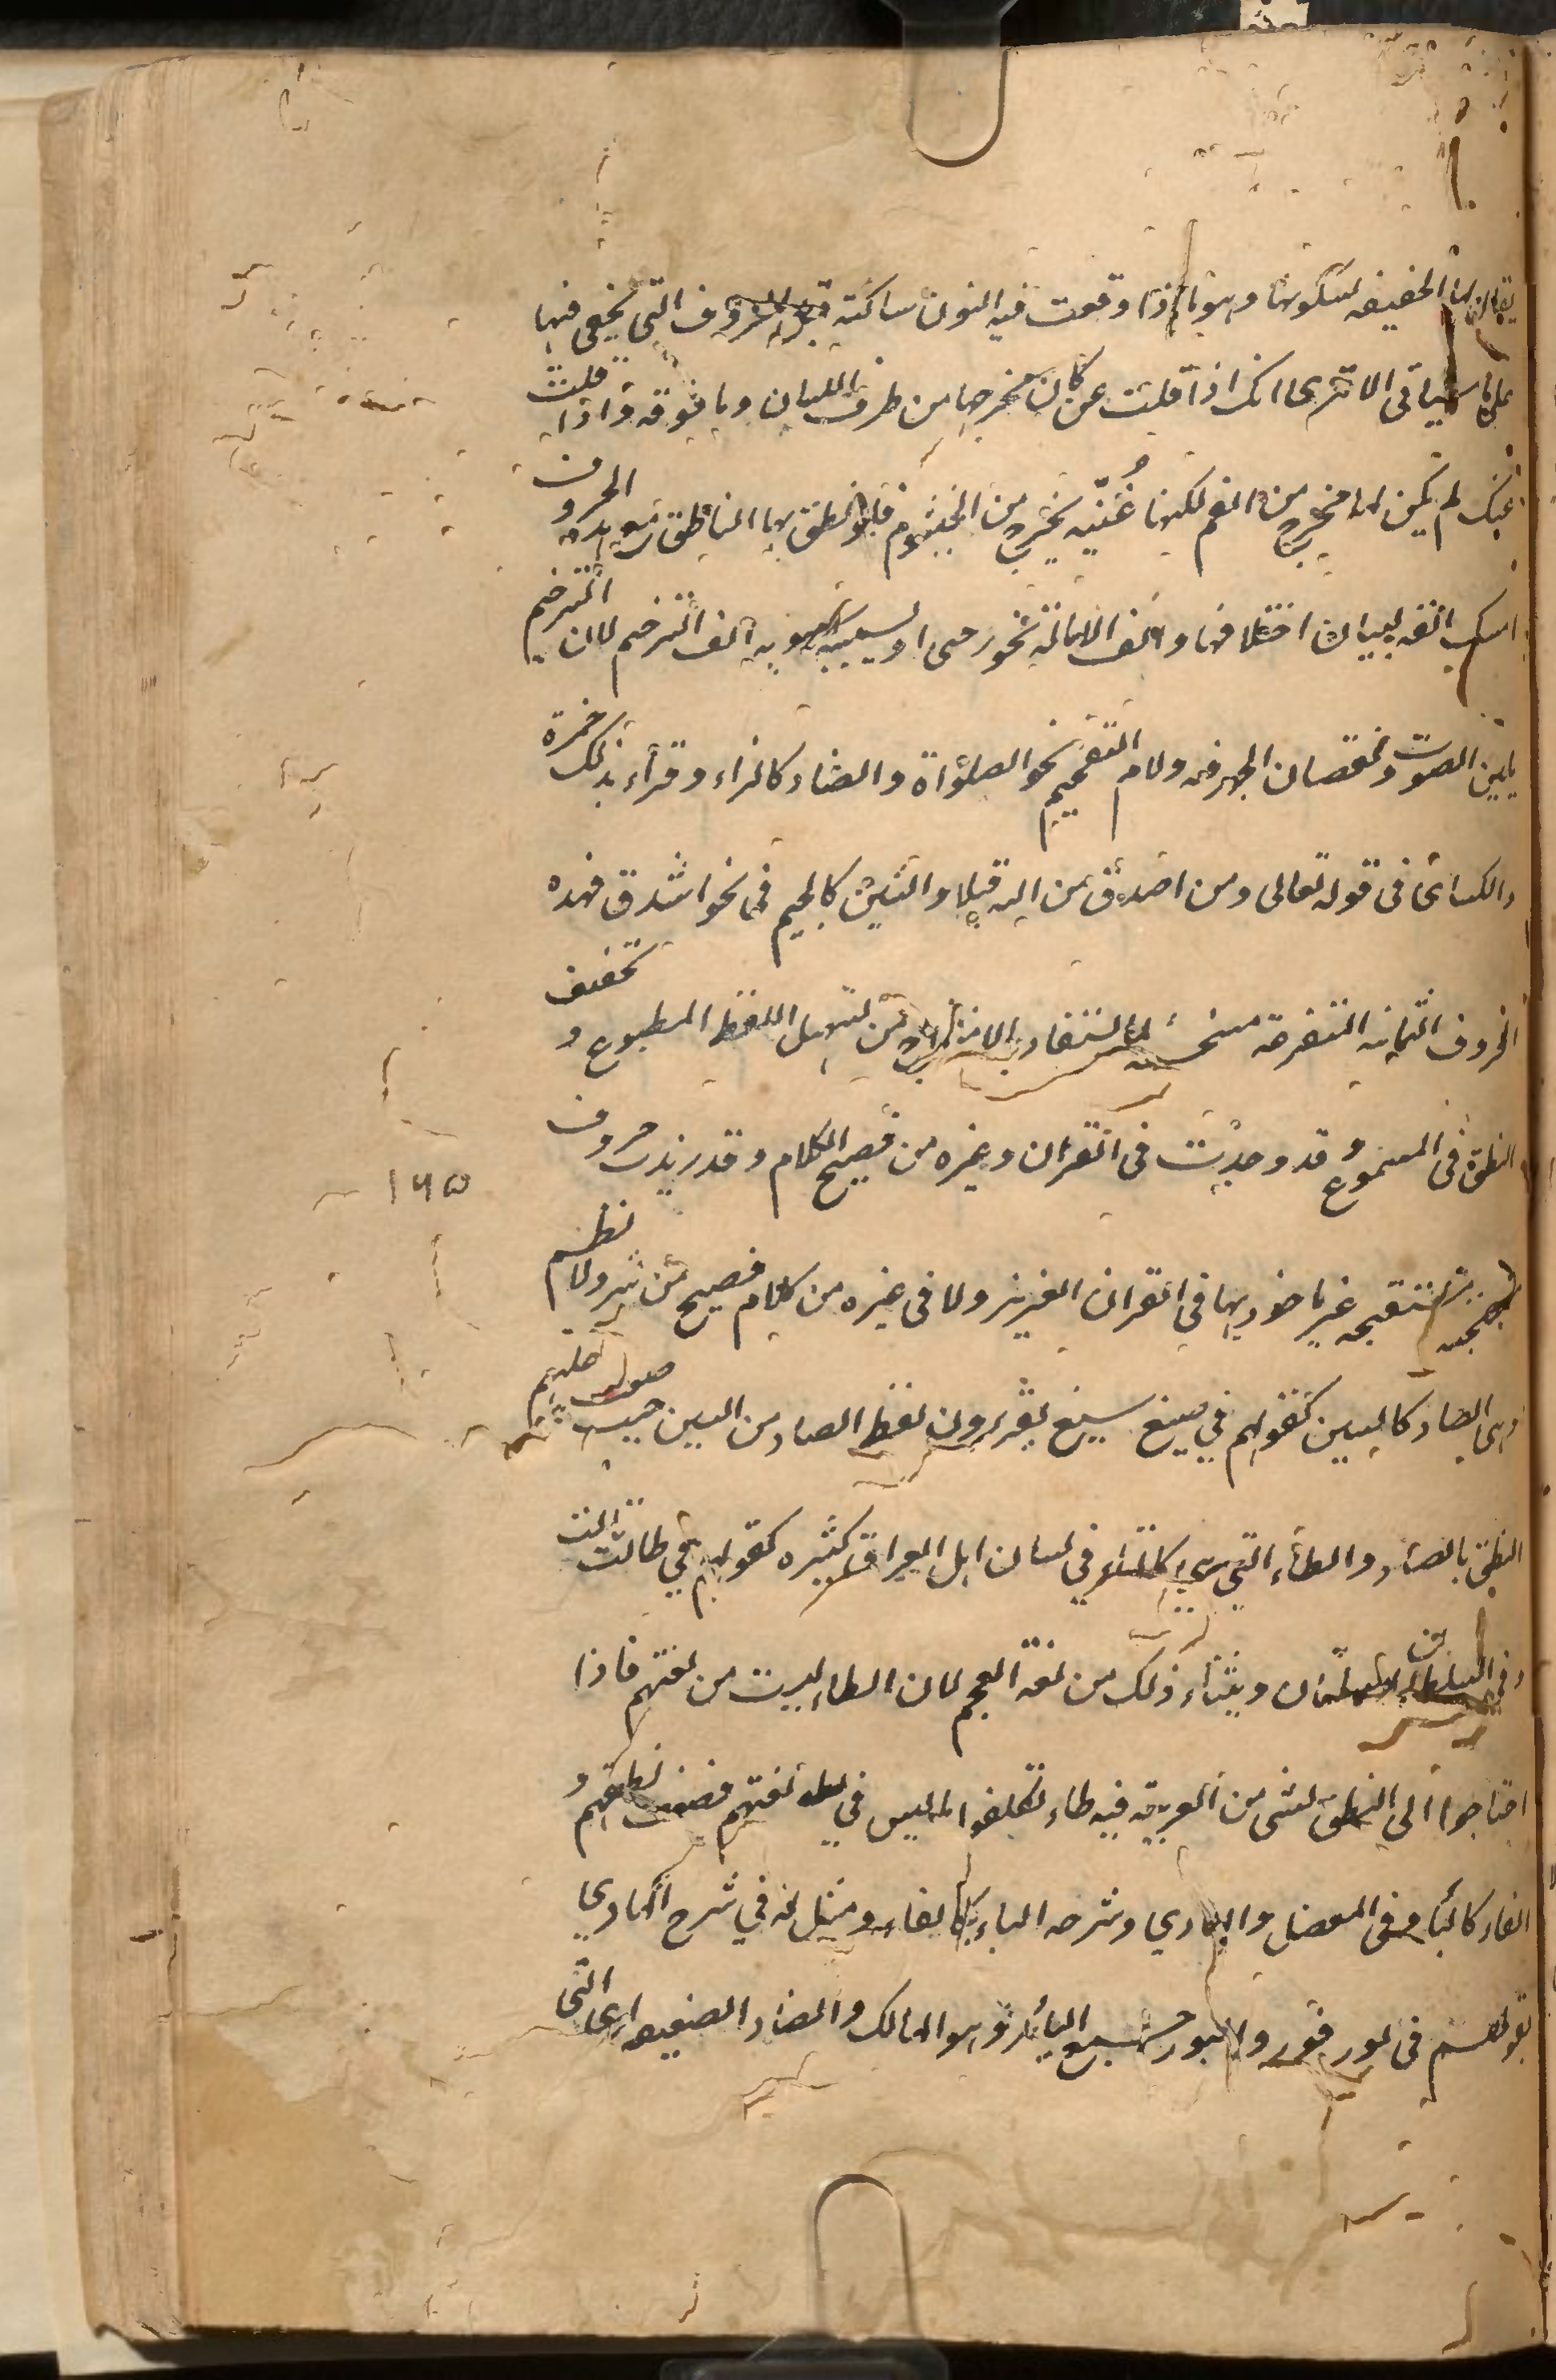 يقال لها الخفيفه لسكونها وهو ما اذا وقعت فيه النون ساكنة قبل الحروف التى يخفى فيها
على ما سياتى الا ترى انك اذا قلت عن كان مخرجها من طرف اللسان وما فوقه واذا قلت
عنك لم يكن لها مخرج من الفم لكنها غنّه يخرج من الخيشوم فلو نطق بها الناطق مع هذه الحروف
امسك انفه لبان اختلافها والف الامالة نحو رمى ويسميه سيبويه الف الترخيم لان الترخيم
يلين الصوت ونقصان الجهر فيه ولام التفخيم نحو الصلواة والصاد كالزاء وقرأء بذلك حمزة
والكسائى فى قوله تعالى ومن اصدق من الله قيلا والشين كالجيم فى نحو اشدق فهذه
الحروف الثمانيه المتفرعة مستحسنه من تسهيل اللفظ المطبوع و تخفيف
النطق فى المسموع وقد وجدت فى القران وغيره من فصيح الكلام وقد زيدت حروف
مستقبحه غير ماخوذ بها فى القران العزيز ولا فى غيره من كلام فصيح من نثر ولا نظم
وهى الصاد كالسين كقولهم في صبغ سبغ يقربون لفظ الصاد من السين حيث صعب عليهم
النطق بالصاد والطاء التي كالتاء في لسان اهل العراق كثيره كقولهم في طالت تالت
وفي السلطان السلتان وينشاء ذلك من لغة العجم لان الطاء ليست من لغتهم فاذا
احتاجوا الى النطق لشى من العربية فيه طاء تكلفوا ما ليس في لغتهم فضعف نطقهم و
الفاء كالباء وفى المفصل والهادي وشرحه الباء كالفاء ومثل له في شرح الهادي
بقولهم فى بور فور والبور جمع البائر وهو الهالك والضاد الضعيفه اى التى
١٦٥